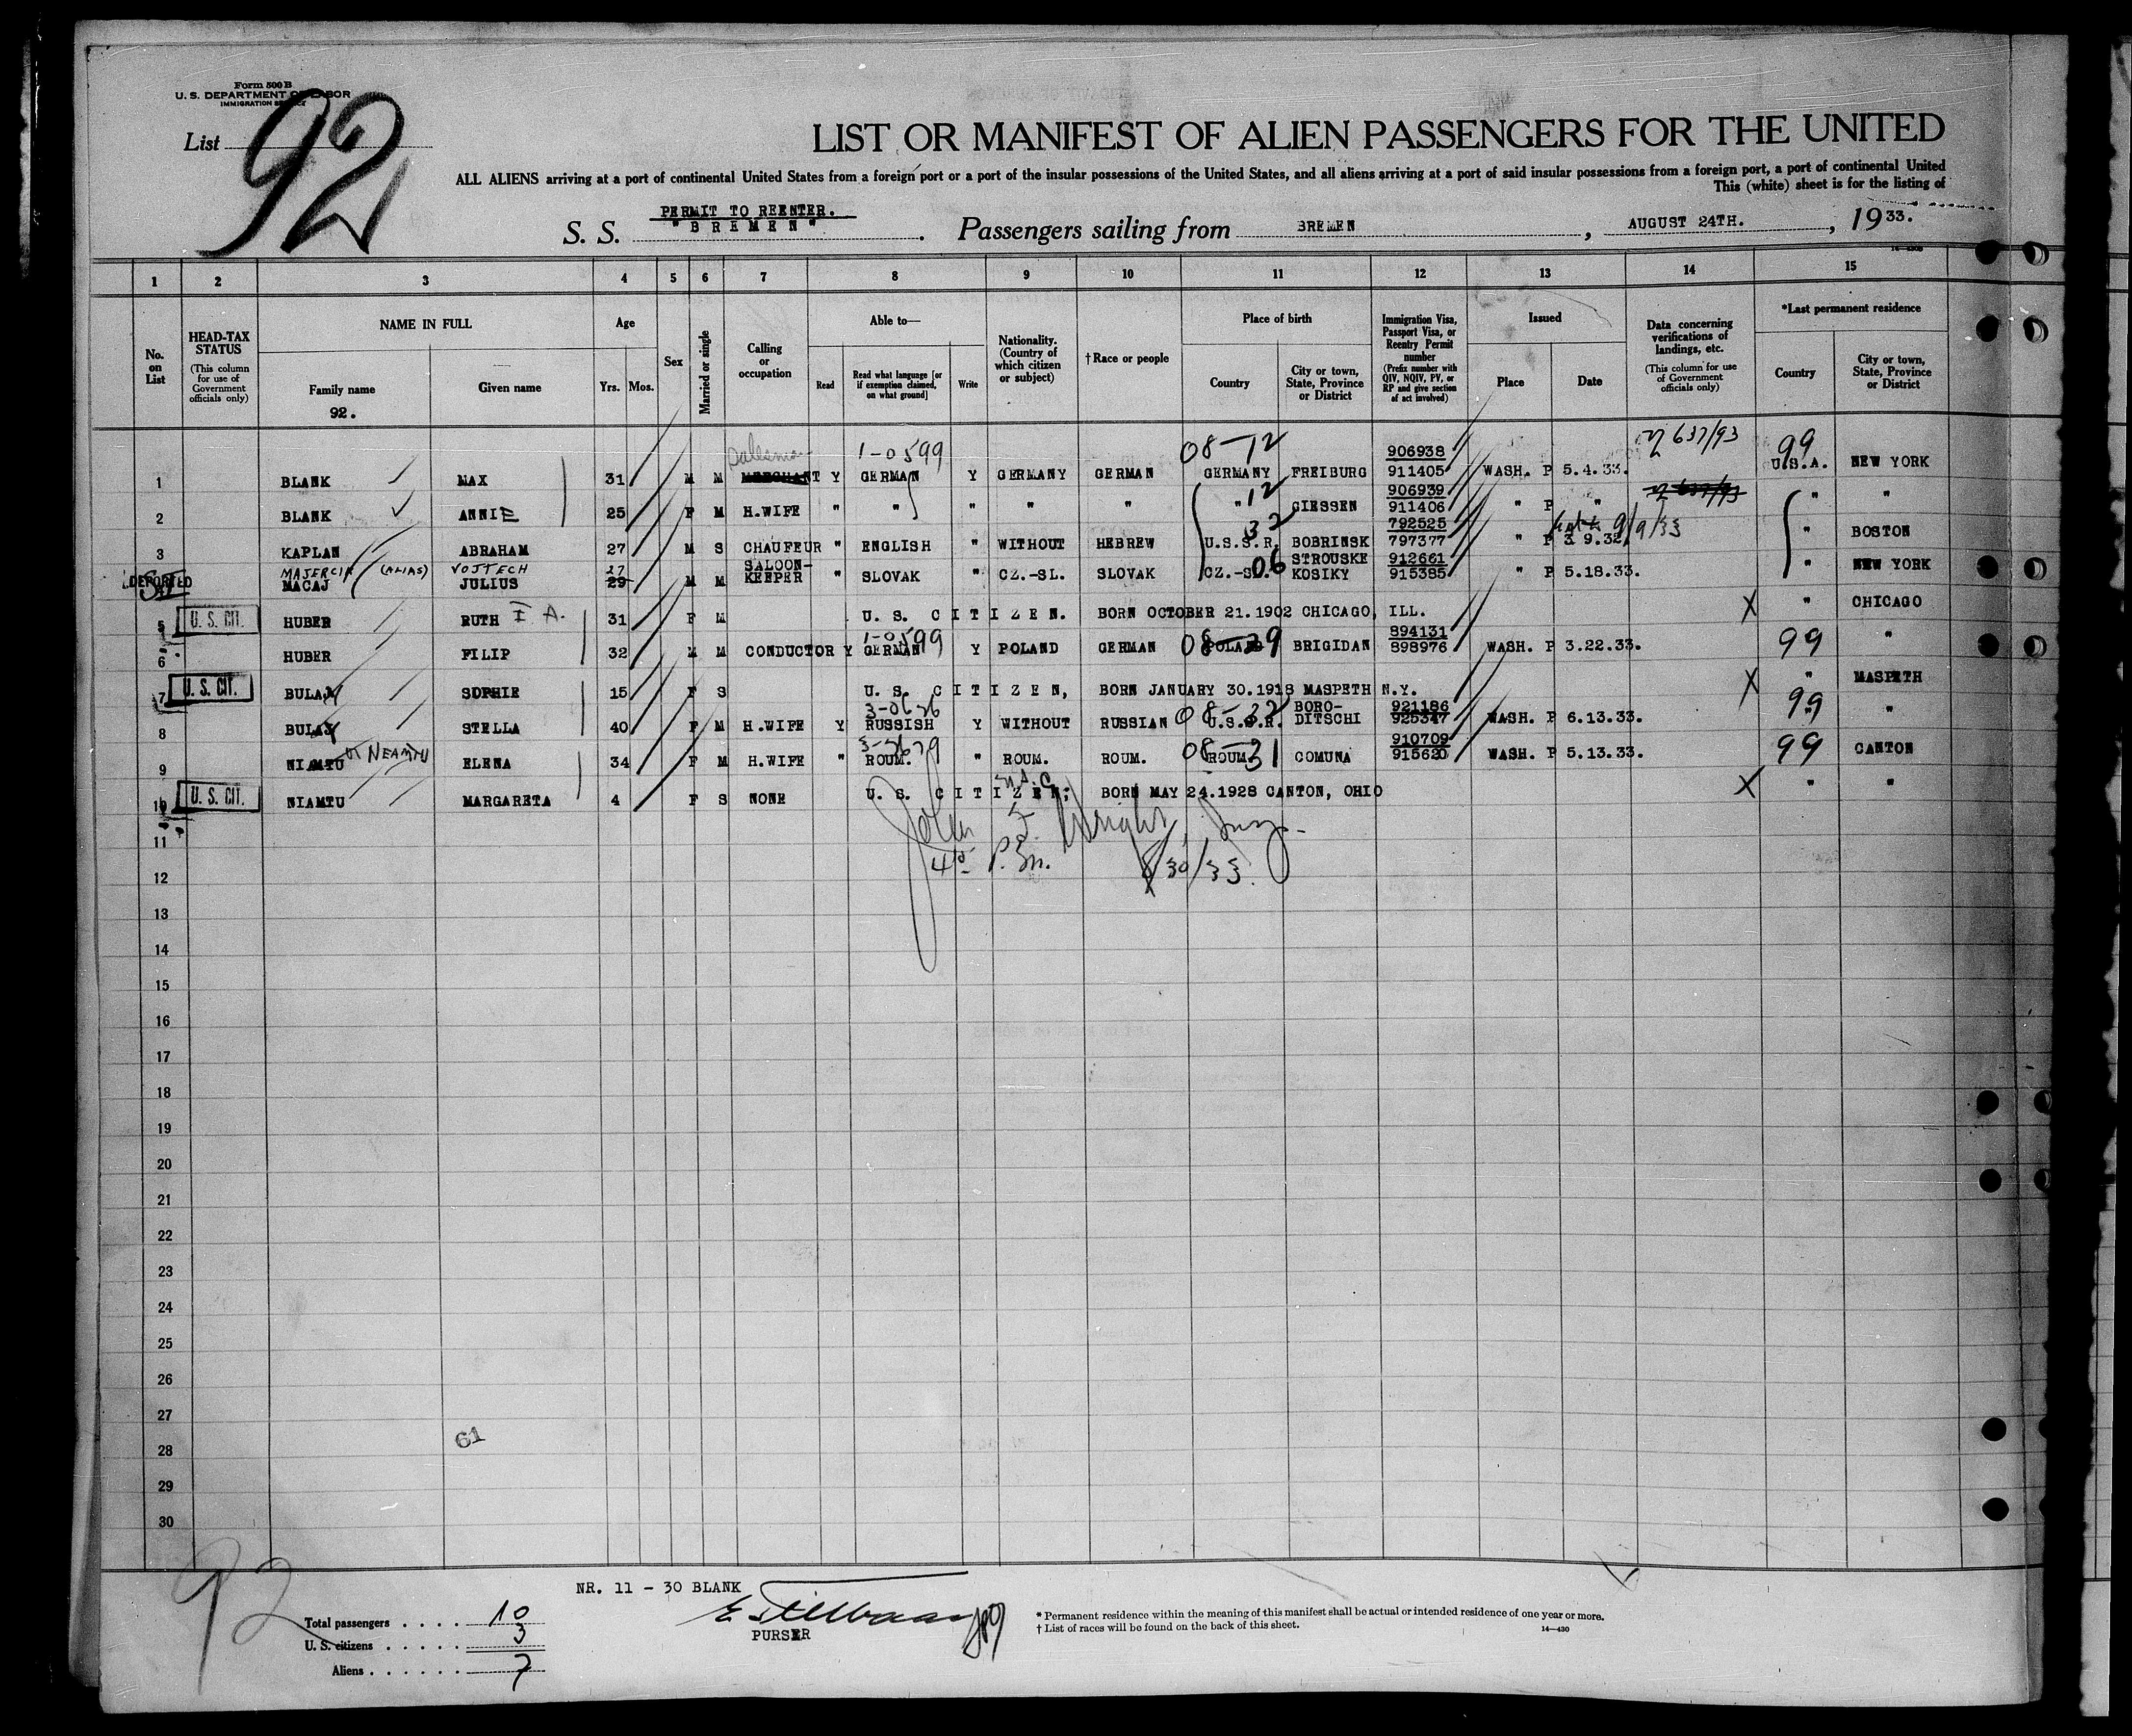 Form 500 B
U. S. DEPARTMENT OF LABOR
IMMIGRATION SERVICE
List 92
LIST OR MANIFEST OF ALIEN PASSENGERS FOR THE UNITED
ALL ALIENS arriving at a port of continental United States from a foreign port or a port of the insular possessions of the United States, and all aliens arriving at a port of said insular possessions from a foreign port, a port of continental United
This (white) sheet is for the listing of
PERMIT TO REENTER.
S. S. "BREMEN". Passengers sailing from BREMEN, AUGUST 24TH., 1933.
1 2 3 4 5 6 7 8 9 10 11 12 13 14 15
No. on List
HEAD-TAX STATUS (This column for use of Government officials only)
NAME IN FULL
Family name
92.
Given name
Age
Yrs. Mos.
Sex
Married or single
Calling or occupation
Able to—
Read
Read what language [or if exemption claimed, on what ground]
Write
Nationality. (Country of which citizen or subject)
†Race or people
Place of birth
Country
City or town, State, Province or District
Immigration Visa, Passport Visa, or Reentry Permit number (Prefix number with QIV, NQIV, PV, or RP and give section of act involved)
Issued
Place
Date
Data concerning verifications of landings, etc. (This column for use of Government officials only)
*Last permanent residence
Country
City or town, State, Province or District
1-0599 08-12 906938 637/93 99
1 BLANK MAX 31 M M MERCHANT Y GERMAN Y GERMANY GERMAN GERMANY FREIBURG 911405 WASH. P 5.4.33. U.S.A. NEW YORK
12 906939
2 BLANK ANNIE 25 F M H.WIFE " " " " " " GIESSEN 911406 " P " " "
32 792525 9/9/33
3 KAPLAN ABRAHAM 27 M S CHAUFEUR " ENGLISH " WITHOUT HEBREW U.S.S.R. BOBRINSK 797377 " P 3.9.32 " BOSTON
MAJERCIK (ALIAS) VOJTECH 27 SALOON- 06 STROUSKE 912661
DEPORTED MACAJ JULIUS 29 M M KEEPER " SLOVAK " CZ.-SL. SLOVAK CZ.-SL. KOSIKY 915385 " P 5.18.33. " NEW YORK
5 U. S. CIT. HUBER RUTH I A. 31 F M U. S. CITIZEN. BORN OCTOBER 21.1902 CHICAGO, ILL. X " CHICAGO
1-0599 08-29 894131
6 HUBER FILIP 32 M M CONDUCTOR Y GERMAN Y POLAND GERMAN POLAND BRIGIDAN 898976 WASH. P 3.22.33. 99 "
7 U. S. CIT. BULAY SOPHIE 15 F S U. S. CITIZEN, BORN JANUARY 30.1918 MASPETH N.Y. X " MASPETH
08-32 BORO- 921186 99
8 BULAY STELLA 40 F M H.WIFE Y RUSSISH Y WITHOUT RUSSIAN U.S.S.R. DITSCHI 925347 WASH. P 6.13.33. " "
or NEAMTU 08-31 910709
9 NIAMTU ELENA 34 F M H.WIFE " ROUM. " ROUM. ROUM. ROUM. COMUNA 915620 WASH. P 5.13.33. 99 CANTON
10 U. S. CIT. NIAMTU MARGARETA 4 F S NONE U. S. CITIZEN; BORN MAY 24.1928 CANTON, OHIO X " "
John F. Wright, Insp.
P.M. 8/30/33.
11
12
13
14
15
16
17
18
19
20
21
22
23
24
25
26
27
61
28
29
30
92
NR. 11 - 30 BLANK
Total passengers 10
U. S. citizens 3
Aliens 7
PURSER
* Permanent residence within the meaning of this manifest shall be actual or intended residence of one year or more.
† List of races will be found on the back of this sheet.
14—430